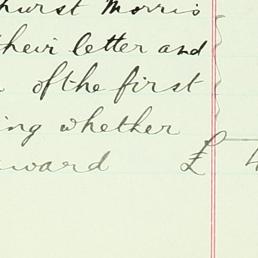 hurst Morris
their letter and
of the first
ing whether
ward £